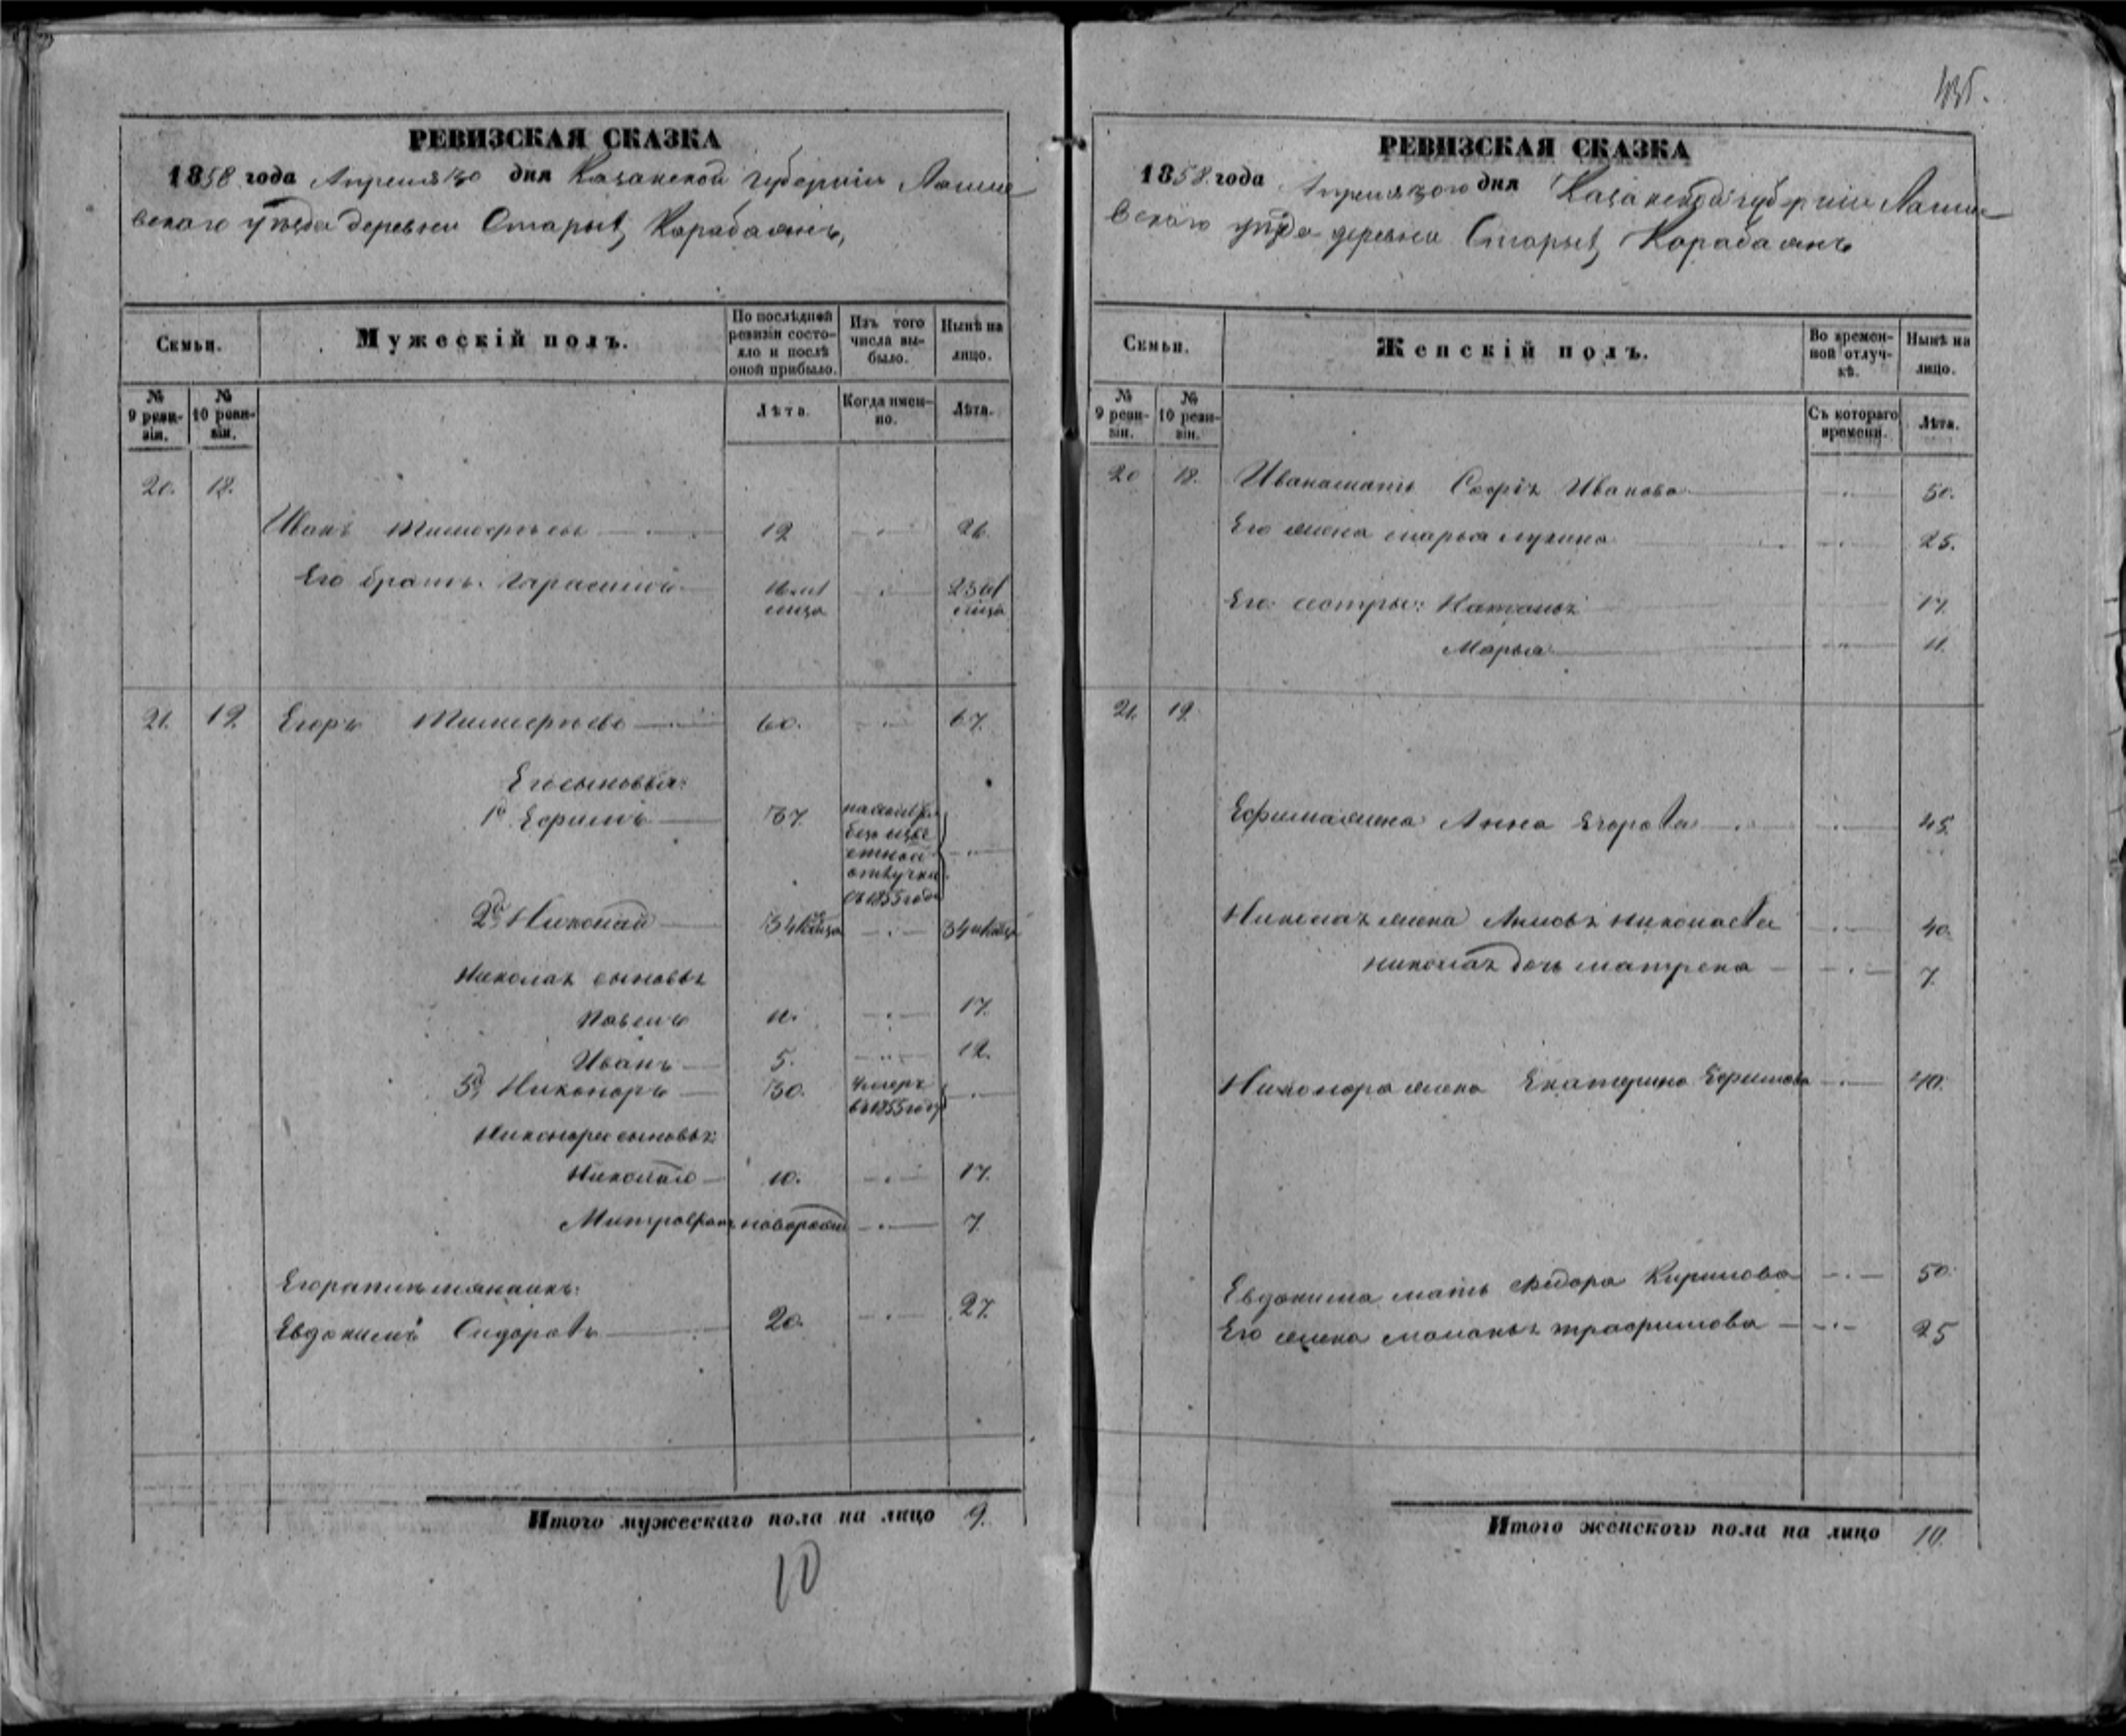 РЕВИЗСКАЯ СКАЗКА
1858 года Апреля 30 дня Казанской губернии Лаише
вского уѣзда деревни Старыхъ Карабаянъ,
Семьи.
Мужескій полъ.
По послѣдней ревизіи состо-
яло и послѣ
оной прибыло.
Изъ того
числа вы-
было.
Нынѣ на
лицо.
№
9 реви-
зіи.
№
10 реви-
зіи.
Лѣта.
Когда имен-
но.
Лѣта.
20. 18.
Иванъ Тимофѣевъ 19 26
Его братъ Гарасимъ
21. 19 Егоръ Тимофѣевъ 60. 67.
Его сыновья:
1й Ефимъ 37.
отлучки
съ 1855 года
2й Николай
Николая сыновья
Павелъ 11. 17.
Иванъ 5. 12.
3й Никоноръ 30. умеръ
въ 1855 году
Никонора сыновья:
Николай 10. 17.
Митрофанъ новорожд 7
Егора племянникъ:
Евдокимъ Сидоровъ 20. 27.
Итого мужескаго пола на лицо 9.
10
435.
РЕВИЗСКАЯ СКАЗКА
1858 года Апреля 30го дня Казанской губерніи Лаише
вского уѣзда деревни Старыхъ Карабаянъ
Семьи.
Женскій полъ.
Во времен-
ной отлуч-
кѣ.
Нынѣ на
лицо.
№
9 реви-
зіи.
№
10 реви-
зіи.
Съ котораго
времени.
Лѣта.
20 18. Ивана мать Софія Иванова 50.
Его жена Марья Лукина 25.
Его сестры: 17.
Марья 11.
21. 19.
Ефима жена Анна Егорова 45.
Николая жена Николаева 40.
Николая дочь Матрена 7.
Никонора жена Екатерина Ефимова 40.
Евдокима мать Федора Кирилова 50.
Его жена Маланья Трофимова 25
Итого женского пола на лицо 10.